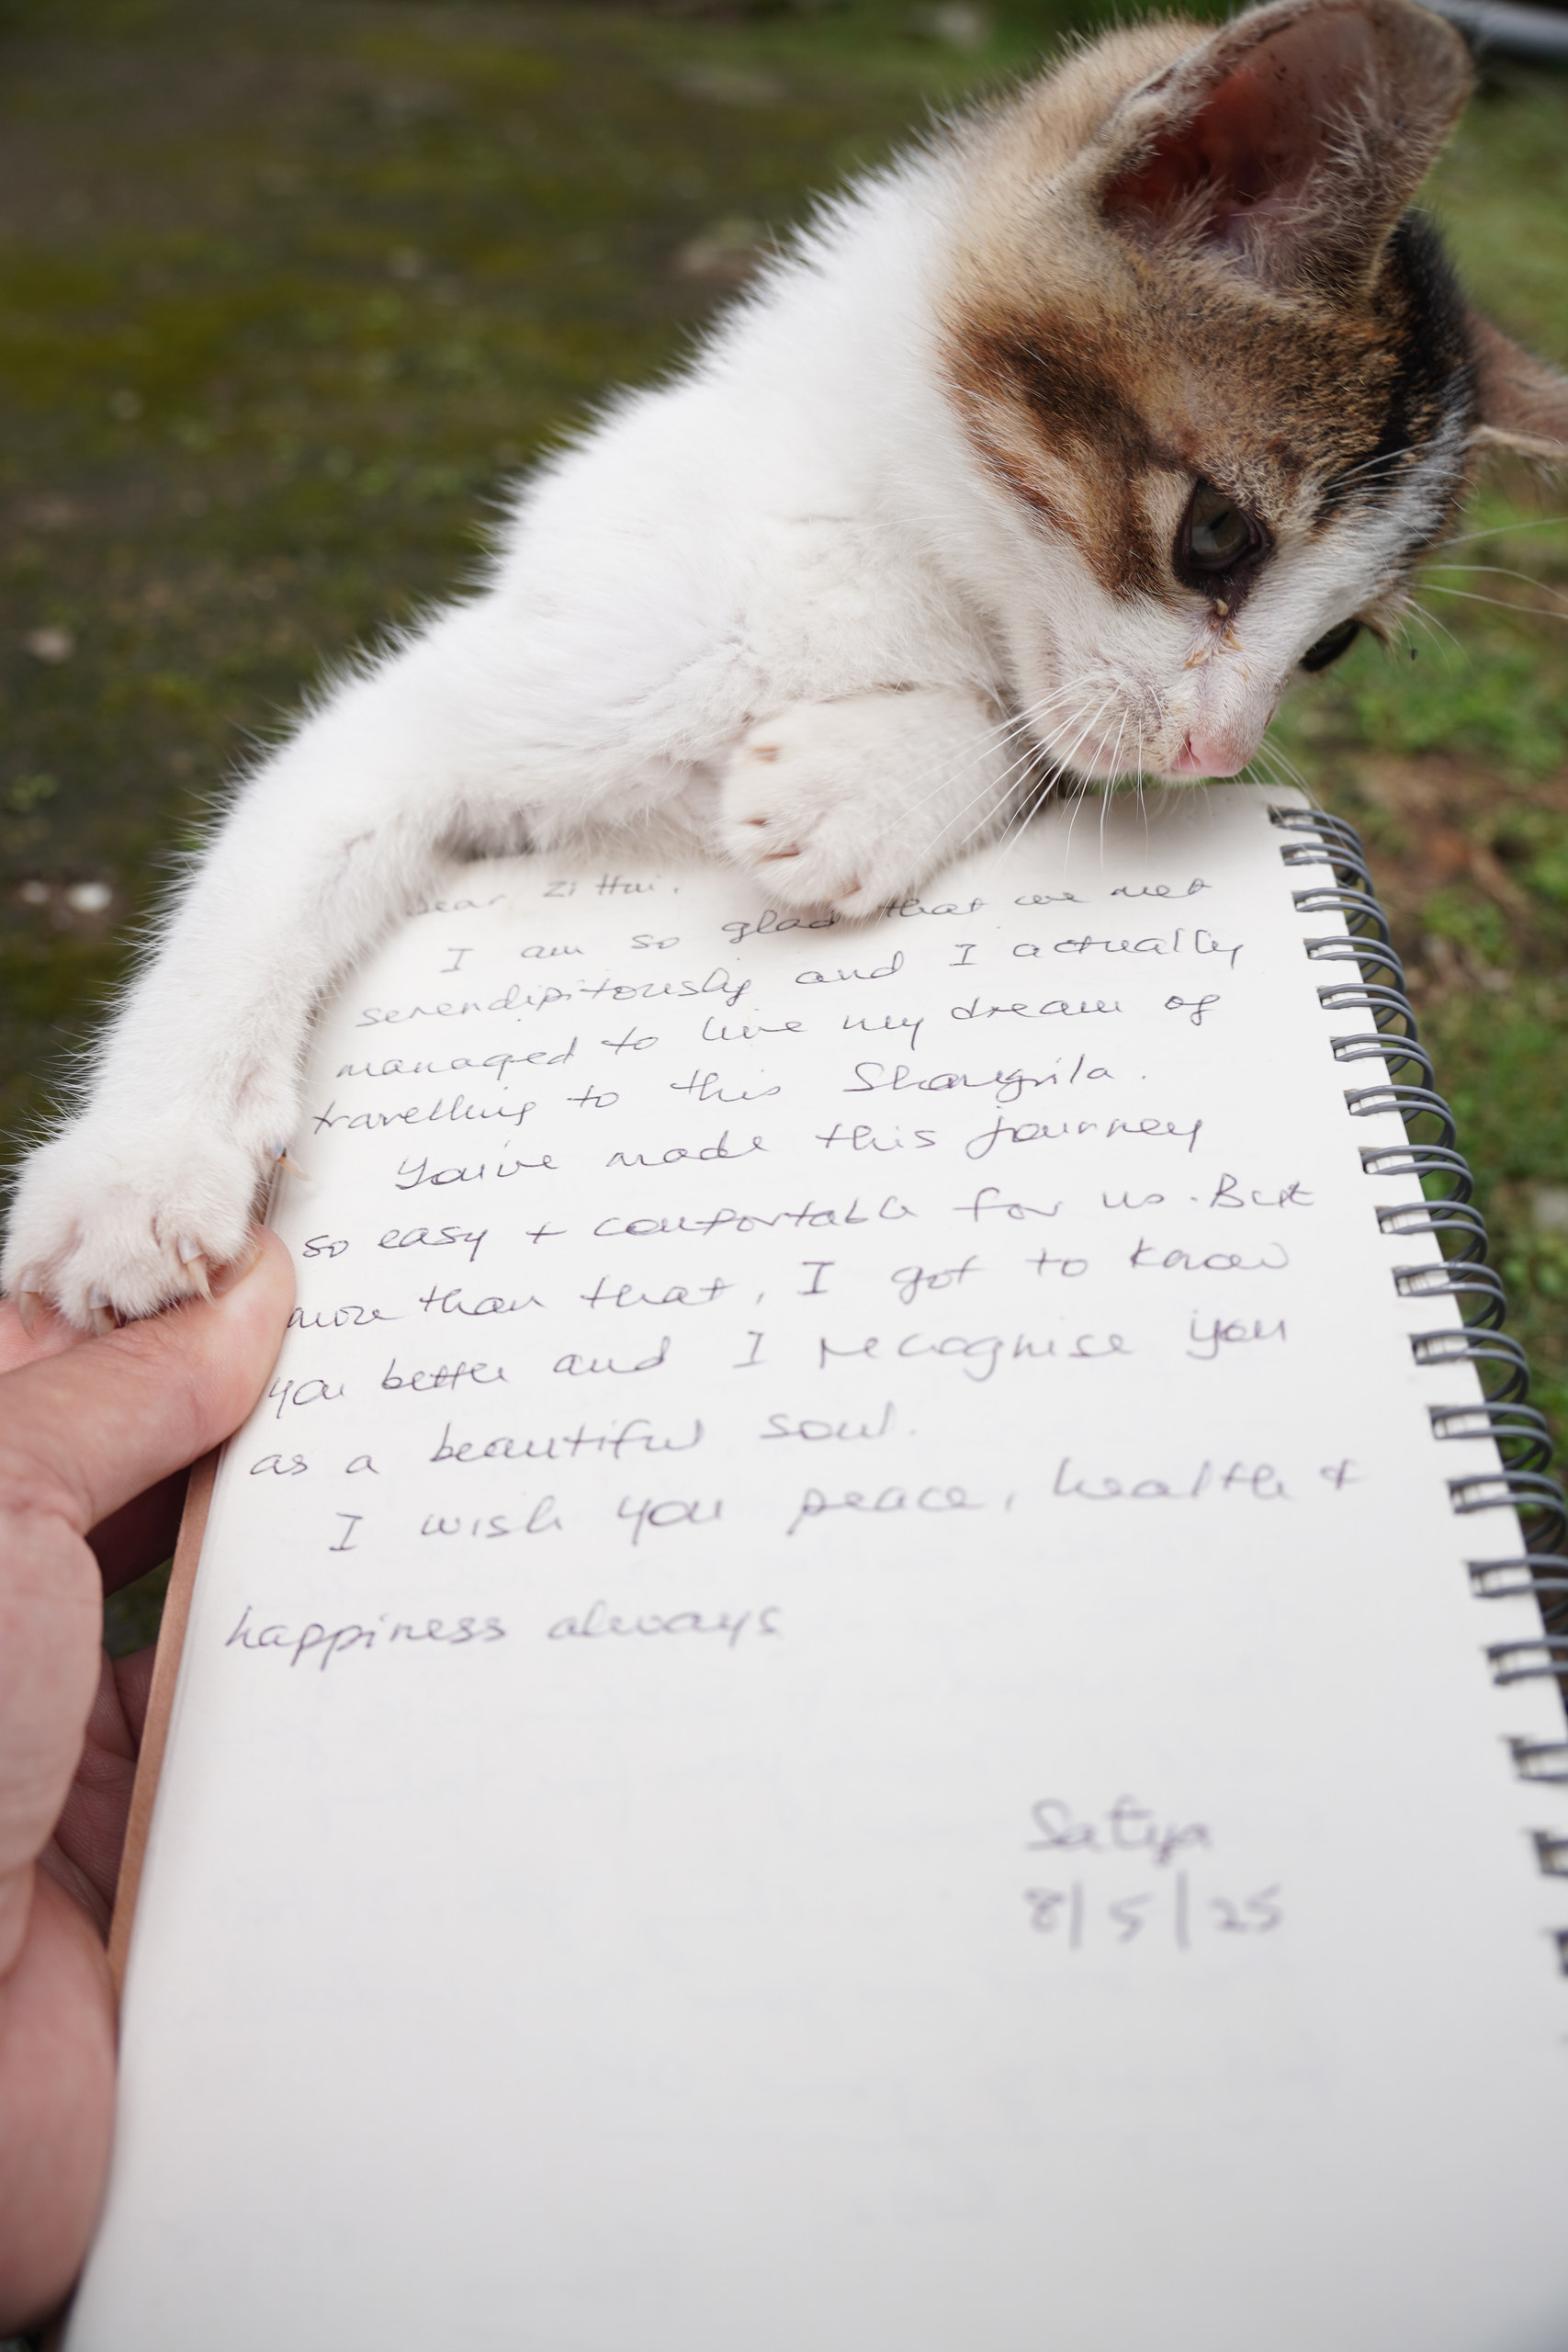 Dear Zi Hui.
I am so glad that we met
serendipitously and I actually
managed to live my dream of
travelling to this Shangrila.
You've made this journey
so easy + comfortable for us. But
more than that, I got to know
you better and I recognise you
as a beautiful soul.
I wish you peace, health +
happiness always
Satya
8/5/25